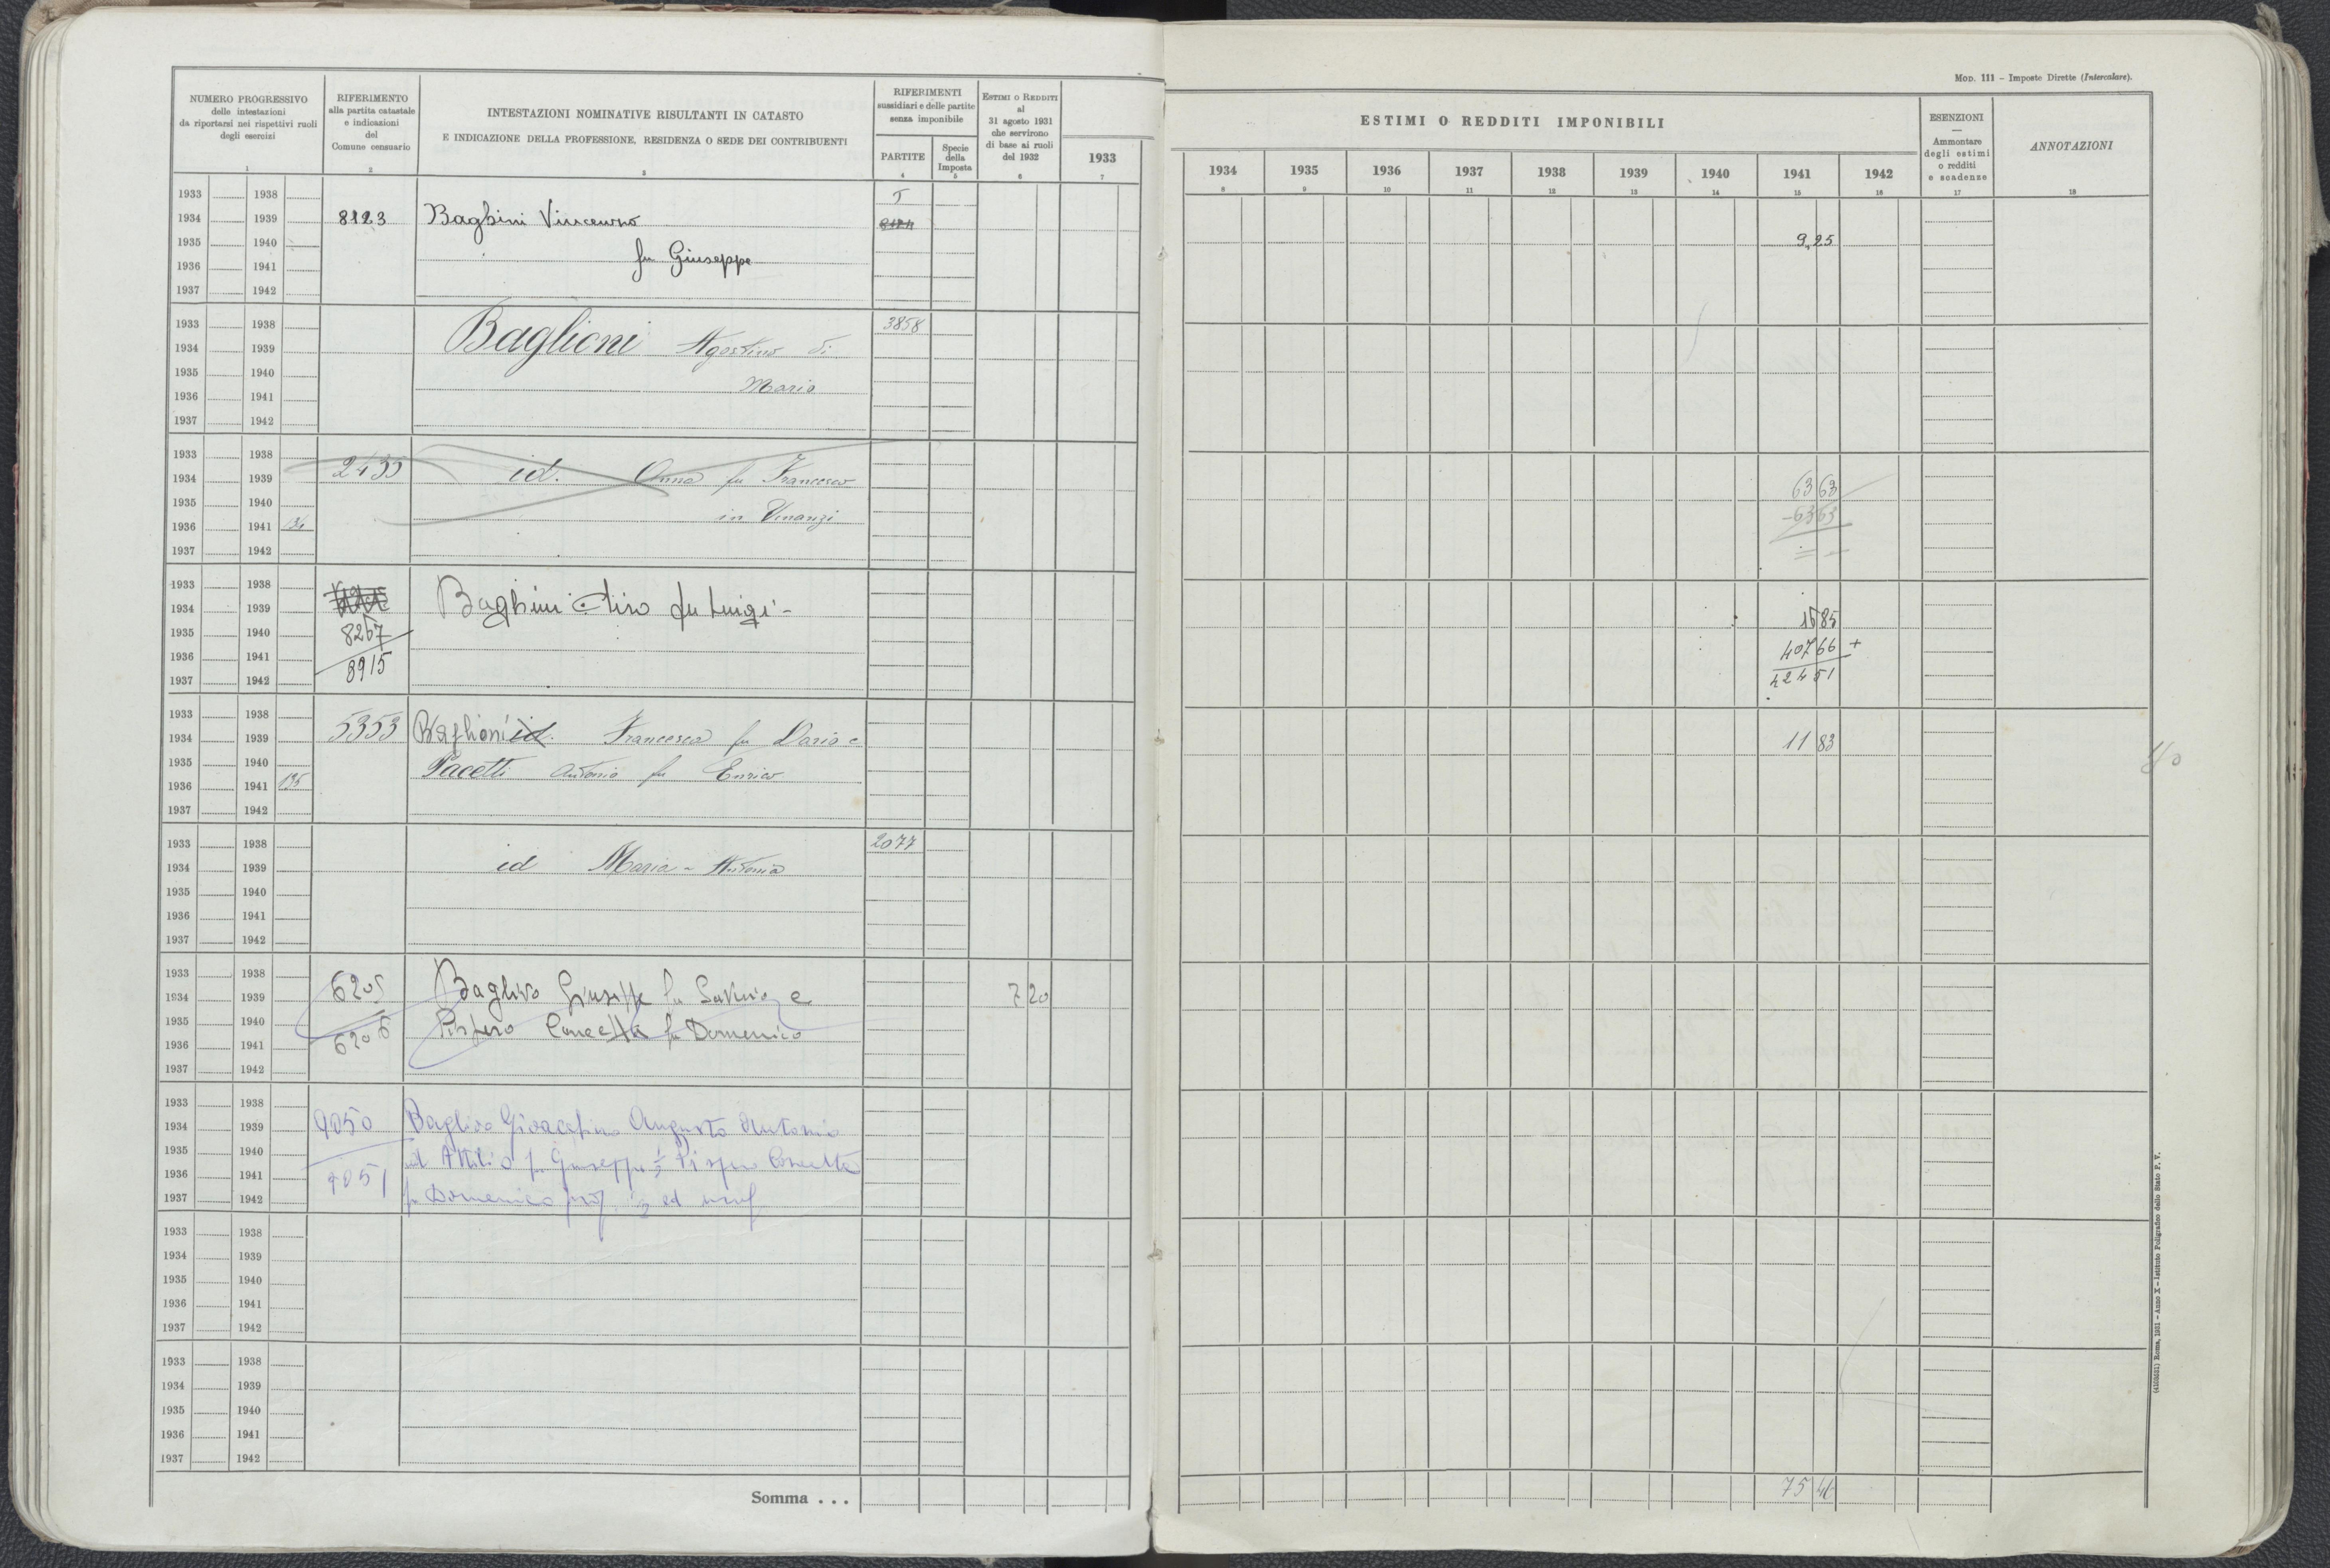 Mod. 111 – Imposte Dirette (Intercalare).
NUMERO PROGRESSIVO
delle intestazioni
da riportarsi nei rispettivi ruoli
degli esercizi
1
RIFERIMENTO
alla partita catastale
e indicazioni
del
Comune censuario
2
INTESTAZIONI NOMINATIVE RISULTANTI IN CATASTO
E INDICAZIONE DELLA PROFESSIONE, RESIDENZA O SEDE DEI CONTRIBUENTI
3
RIFERIMENTI
sussidiari e delle partite
senza imponibile
PARTITE
4
Specie
della
Imposta
5
Estimi o Redditi
al
31 agosto 1931
che servirono
di base ai ruoli
del 1932
6
1933
7
ESTIMI O REDDITI IMPONIBILI
1934 1935 1936 1937 1938 1939 1940 1941 1942
8 9 10 11 12 13 14 15 16
ESENZIONI
—
Ammontare
degli estimi
o redditi
e scadenze
17
ANNOTAZIONI
18
1933 1938
1934 1939 8123 Baglini Vincenzo
1935 1940 9,25
fu Giuseppe
1936 1941
1937 1942
1933 1938 3858
1934 1939 Baglioni Agostino di
1935 1940
Mario
1936 1941
1937 1942
1933 1938
1934 1939 2435 id. Anna fu Francesco 63 63
1935 1940
1936 1941 134 in -63 63
1937 1942
1933 1938
1934 1939 Baglini fu Luigi - 1685
1935 1940 8267
1936 1941 8915 407 66 +
1937 1942 424 51
1933 1938
1934 1939 5353 Baglioni id. Francesco fu Dario e 11 83
1935 1940 Pacetti Antonio fu Enrico
1936 1941 135
1937 1942
1933 1938 2077
1934 1939 id Maria - Antonia
1935 1940
1936 1941
1937 1942
1933 1938
1934 1939 6205 Baglivo Giuseppe fu Saverio e 7 20
1935 1940 Pispero Concetta fu Domenico
1936 1941 6206
1937 1942
1933 1938
1934 1939 9050 Baglivo Gioacchino Augusto Antonio
1935 1940 ed Attilio fu Giuseppe Pispero Concetta
1936 1941 9051
1937 1942 fu Domenico prop. 1/2 ed usuf
1933 1938
1934 1939
1935 1940
1936 1941
1937 1942
1933 1938
1934 1939
1935 1940
1936 1941
1937 1942
Somma . . . 75 46
(4103521) Roma, 1931 – Anno X – Istituto Poligrafico dello Stato P. V.